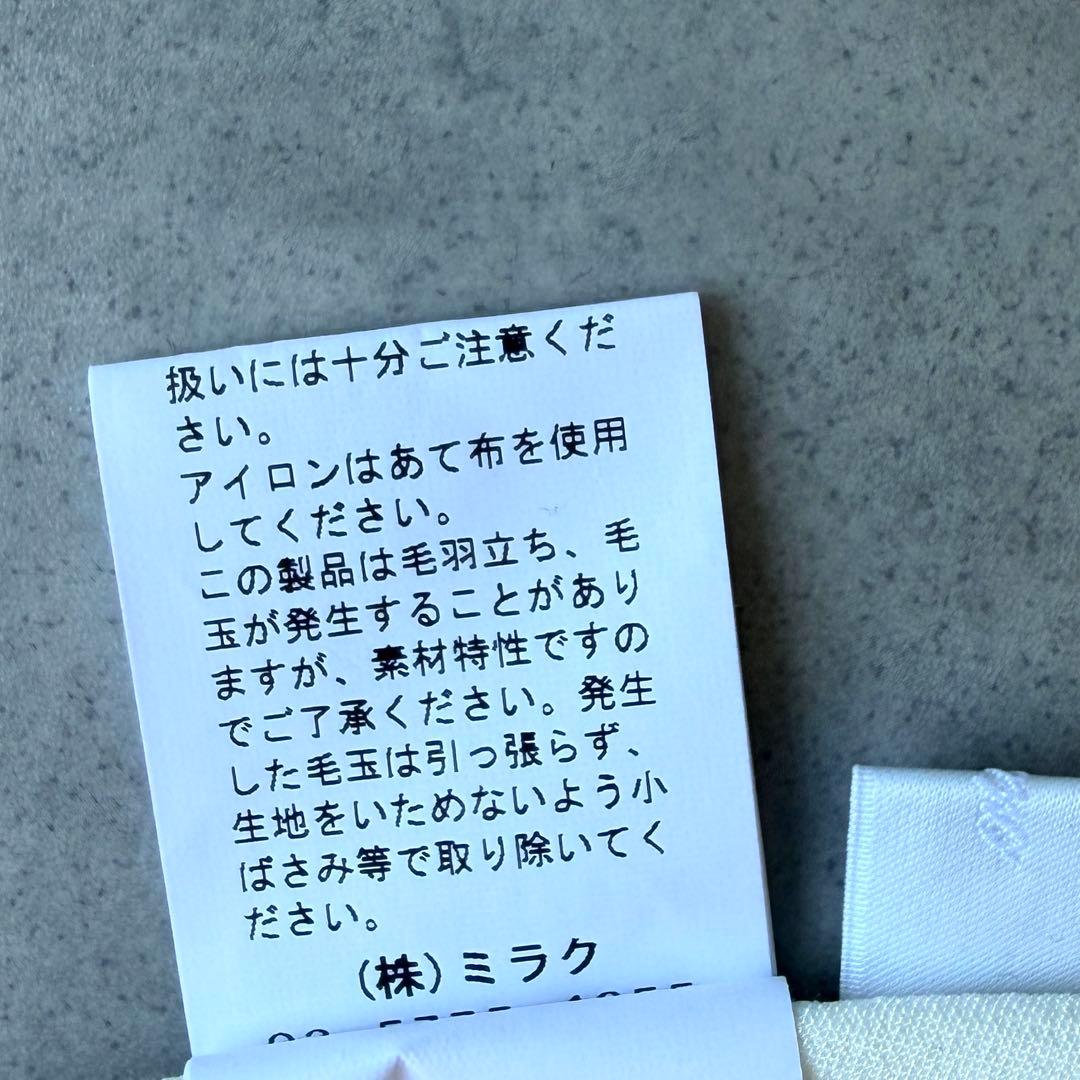 扱いには十分ご注意くだ
さい。
アイロンはあて布を使用
してください。
この製品は毛羽立ち、毛
玉が発生することがあり
ますが、素材特性ですの
でご了承ください。発生
した毛玉は引っ張らず、
生地をいためないよう小
ばさみ等で取り除いてく
ださい。
(株)ミラク